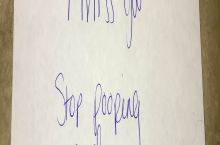 I miss you
Stop pooping